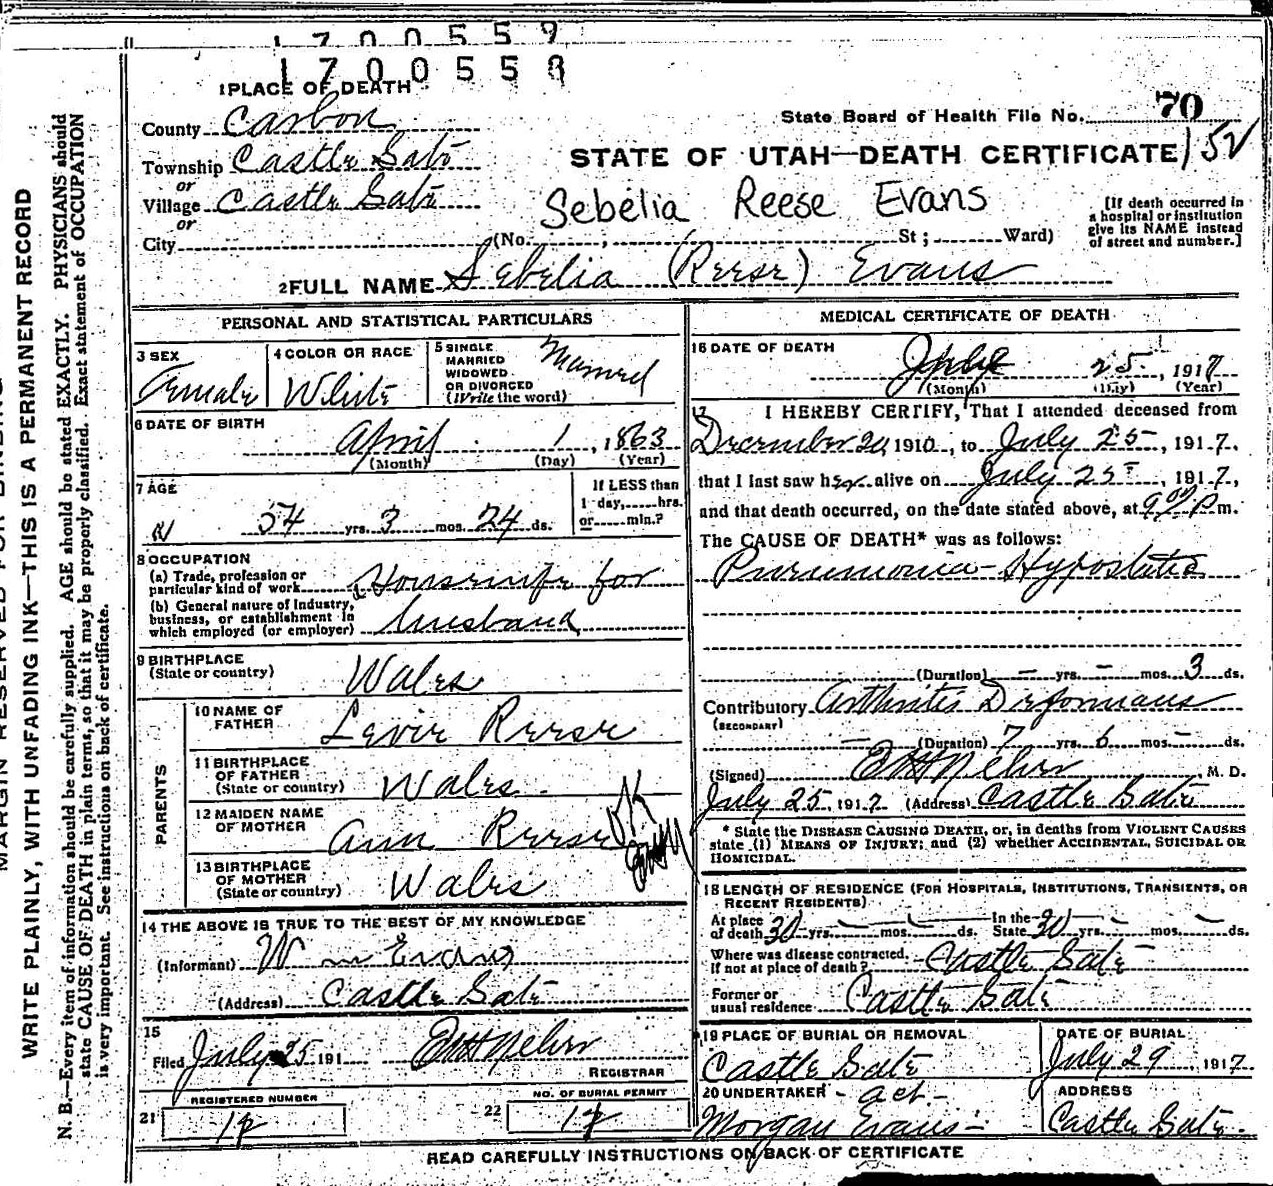 1700559
1700558
1 PLACE OF DEATH
County Carbon
State Board of Health File No. 70
Township Castle Gate
STATE OF UTAH—DEATH CERTIFICATE 152
or
Village Castle Gate
Sebelia Reese Evans
or
City (No. , St ; Ward)
[If death occurred in
a hospital or institution
give its NAME instead
of street and number.]
2 FULL NAME Sebelia (Reese) Evans
PERSONAL AND STATISTICAL PARTICULARS
3 SEX
Female
4 COLOR OR RACE
White
5 SINGLE
MARRIED
WIDOWED
OR DIVORCED
(Write the word)
Married
6 DATE OF BIRTH
April 1, 1863
(Month) (Day) (Year)
7 AGE
54 yrs. 3 mos. 24 ds.
If LESS than
1 day,.....hrs.
or.....min.?
8 OCCUPATION
(a) Trade, profession or
particular kind of work Housewife for
(b) General nature of Industry,
business, or establishment in
which employed (or employer) husband
9 BIRTHPLACE
(State or country) Wales
PARENTS
10 NAME OF
FATHER Levie Reese
11 BIRTHPLACE
OF FATHER
(State or country) Wales
12 MAIDEN NAME
OF MOTHER Ann Reese
13 BIRTHPLACE
OF MOTHER
(State or country) Wales
14 THE ABOVE IS TRUE TO THE BEST OF MY KNOWLEDGE
(Informant) Wm Evans
(Address) Castle Gate
15
Filed July 25 191
REGISTRAR
REGISTERED NUMBER
21
NO. OF BURIAL PERMIT
22
MEDICAL CERTIFICATE OF DEATH
16 DATE OF DEATH
July 25, 1917
(Month) (Day) (Year)
17 I HEREBY CERTIFY, That I attended deceased from
December 20, 1910, to July 25, 1917,
that I last saw her alive on July 25, 1917,
and that death occurred, on the date stated above, at 9 00 P m.
The CAUSE OF DEATH* was as follows:
Pneumonia - Hypostatic
(Duration) — yrs. — mos. 3 ds.
Contributory Arthritis Deformans
(SECONDARY)
— (Duration) 7 yrs. 6 mos. — ds.
(Signed) , M. D.
July 25, 1917 (Address) Castle Gate
* State the DISEASE CAUSING DEATH, or, in deaths from VIOLENT CAUSES
state (1) MEANS OF INJURY; and (2) whether ACCIDENTAL, SUICIDAL OR
HOMICIDAL.
18 LENGTH OF RESIDENCE (FOR HOSPITALS, INSTITUTIONS, TRANSIENTS, OR
RECENT RESIDENTS)
At place
of death yrs. — mos. — ds. In the
State yrs. mos. — ds.
Where was disease contracted,
if not at place of death? Castle Gate
Former or
usual residence Castle Gate
19 PLACE OF BURIAL OR REMOVAL
Castle Gate
DATE OF BURIAL
July 29, 1917
20 UNDERTAKER - act -
Morgan Evans -
ADDRESS
Castle Gate
READ CAREFULLY INSTRUCTIONS ON BACK OF CERTIFICATE
MARGIN RESERVED FOR BINDING
WRITE PLAINLY, WITH UNFADING INK—THIS IS A PERMANENT RECORD
N. B.—Every item of information should be carefully supplied. AGE should be stated EXACTLY. PHYSICIANS should
state CAUSE OF DEATH in plain terms, so that it may be properly classified. Exact statement of OCCUPATION
is very important. See instructions on back of certificate.